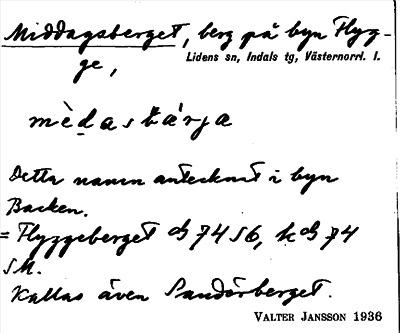 Middagsberget, berg på byn Flyg-
ge,
Lidens sn, Indals tg, Västernorrl. l.
mèdastárja
Detta namn antecknat i byn
Backen.
= Flyggeberget 74 S6, 74
SM.
Kallas även Sandörberget.
VALTER JANSSON 1936